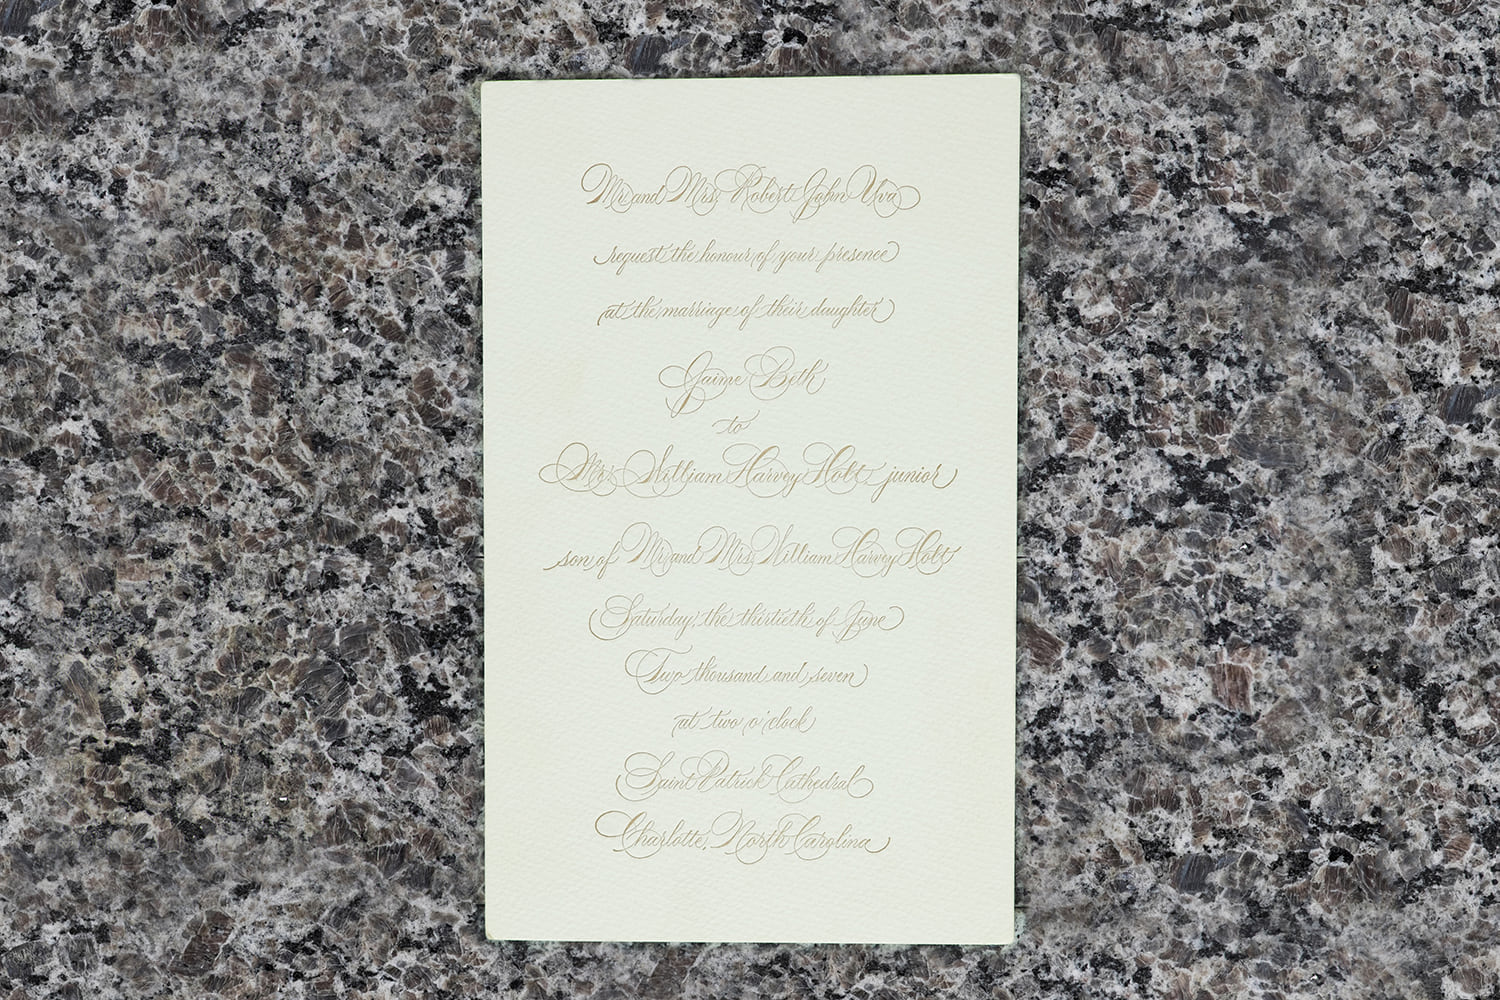 Mr. and Mrs. Robert John Uva
request the honour of your presence
at the marriage of their daughter
Jaime Beth
to
Mr. William Harvey Holt junior
son of Mr. and Mrs. William Harvey Holt
Saturday, the thirtieth of June
Two thousand and seven
at two o'clock
Saint Patrick Cathedral
Charlotte, North Carolina